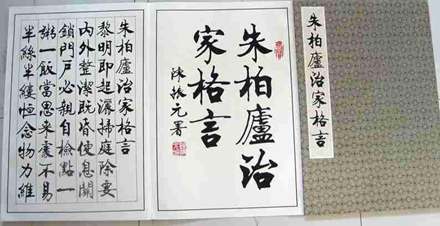 朱柏廬治家格言
朱柏廬治
家格言
陈振元署
朱柏廬治家格言
黎明即起灑掃庭除要
内外整潔既昏便息關
鎖門户必親自檢點一
粥一飯當思來處不易
半絲半縷恒念物力維